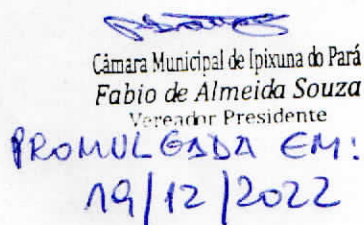 Câmara Municipal de Ipixuna do Pará
Fabio de Almeida Souza
Vereador Presidente
PROMULGADA EM:
19/12/2022